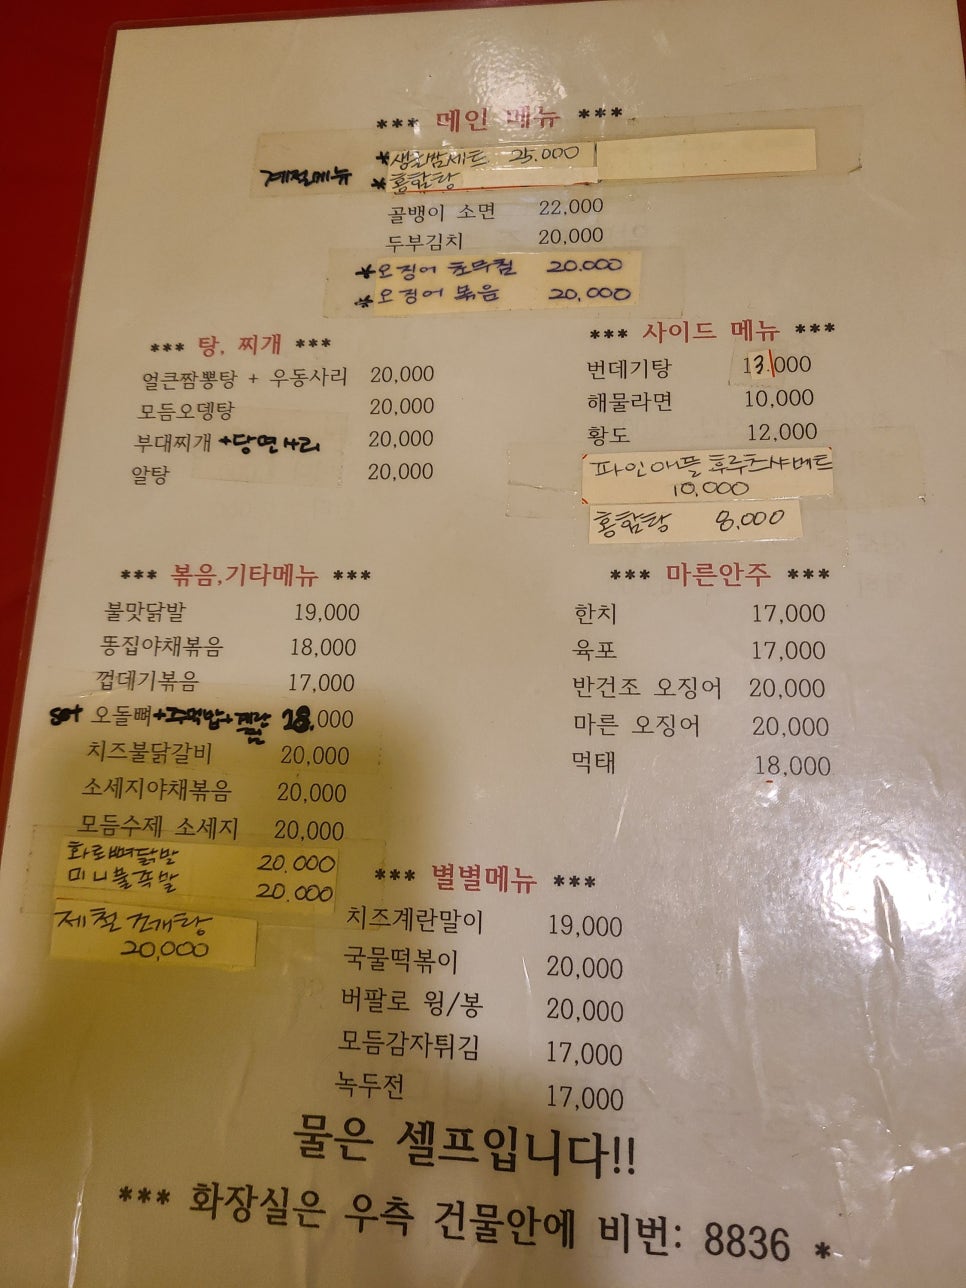 *** 메인 메뉴 ***
계절메뉴
*생굴쌈세트 25.000
*홍합탕
골뱅이 소면 22,000
두부김치 20,000
*오징어 초무침 20.000
*오징어 볶음 20,000
*** 탕, 찌개 ***
얼큰짬뽕탕 + 우동사리 20,000
모듬오뎅탕 20,000
부대찌개 +당면사리 20,000
알탕 20,000
*** 사이드 메뉴 ***
번데기탕 13.000
해물라면 10,000
황도 12,000
파인애플 후루츠샤베트
10,000
홍합탕 8,000
*** 볶음,기타메뉴 ***
불맛닭발 19,000
똥집야채볶음 18,000
껍데기볶음 17,000
set 오돌뼈+주먹밥+계란찜 28,000
치즈불닭갈비 20,000
소세지야채볶음 20,000
모듬수제 소세지 20,000
화로뼈닭발 20.000
미니불족발 20.000
제철 조개탕
20,000
*** 마른안주 ***
한치 17,000
육포 17,000
반건조 오징어 20,000
마른 오징어 20,000
먹태 18,000
*** 별별메뉴 ***
치즈계란말이 19,000
국물떡볶이 20,000
버팔로 윙/봉 20,000
모듬감자튀김 17,000
녹두전 17,000
물은 셀프입니다!!
*** 화장실은 우측 건물안에 비번: 8836 *